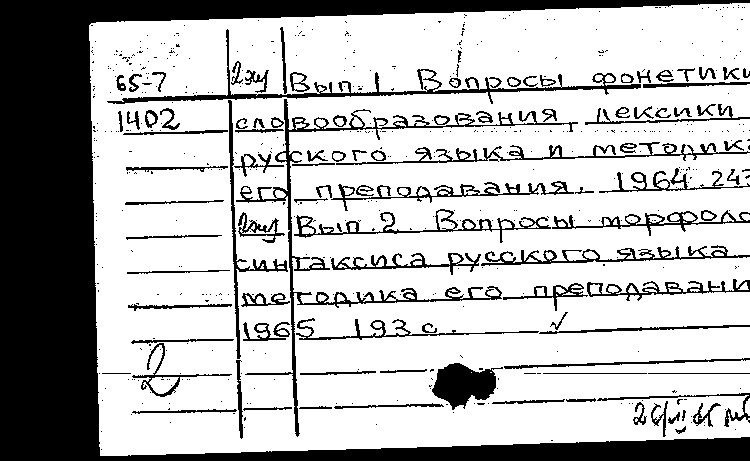 65-7 2экз Вып. 1. Вопросы фонетики
1402 словообразования, лексики
русского языка и методика
его преподавания. 1964. 243
2экз Вып. 2. Вопросы морфоло
синтаксиса русского языка
методика его преподавани
1965 193 с. ✓
2